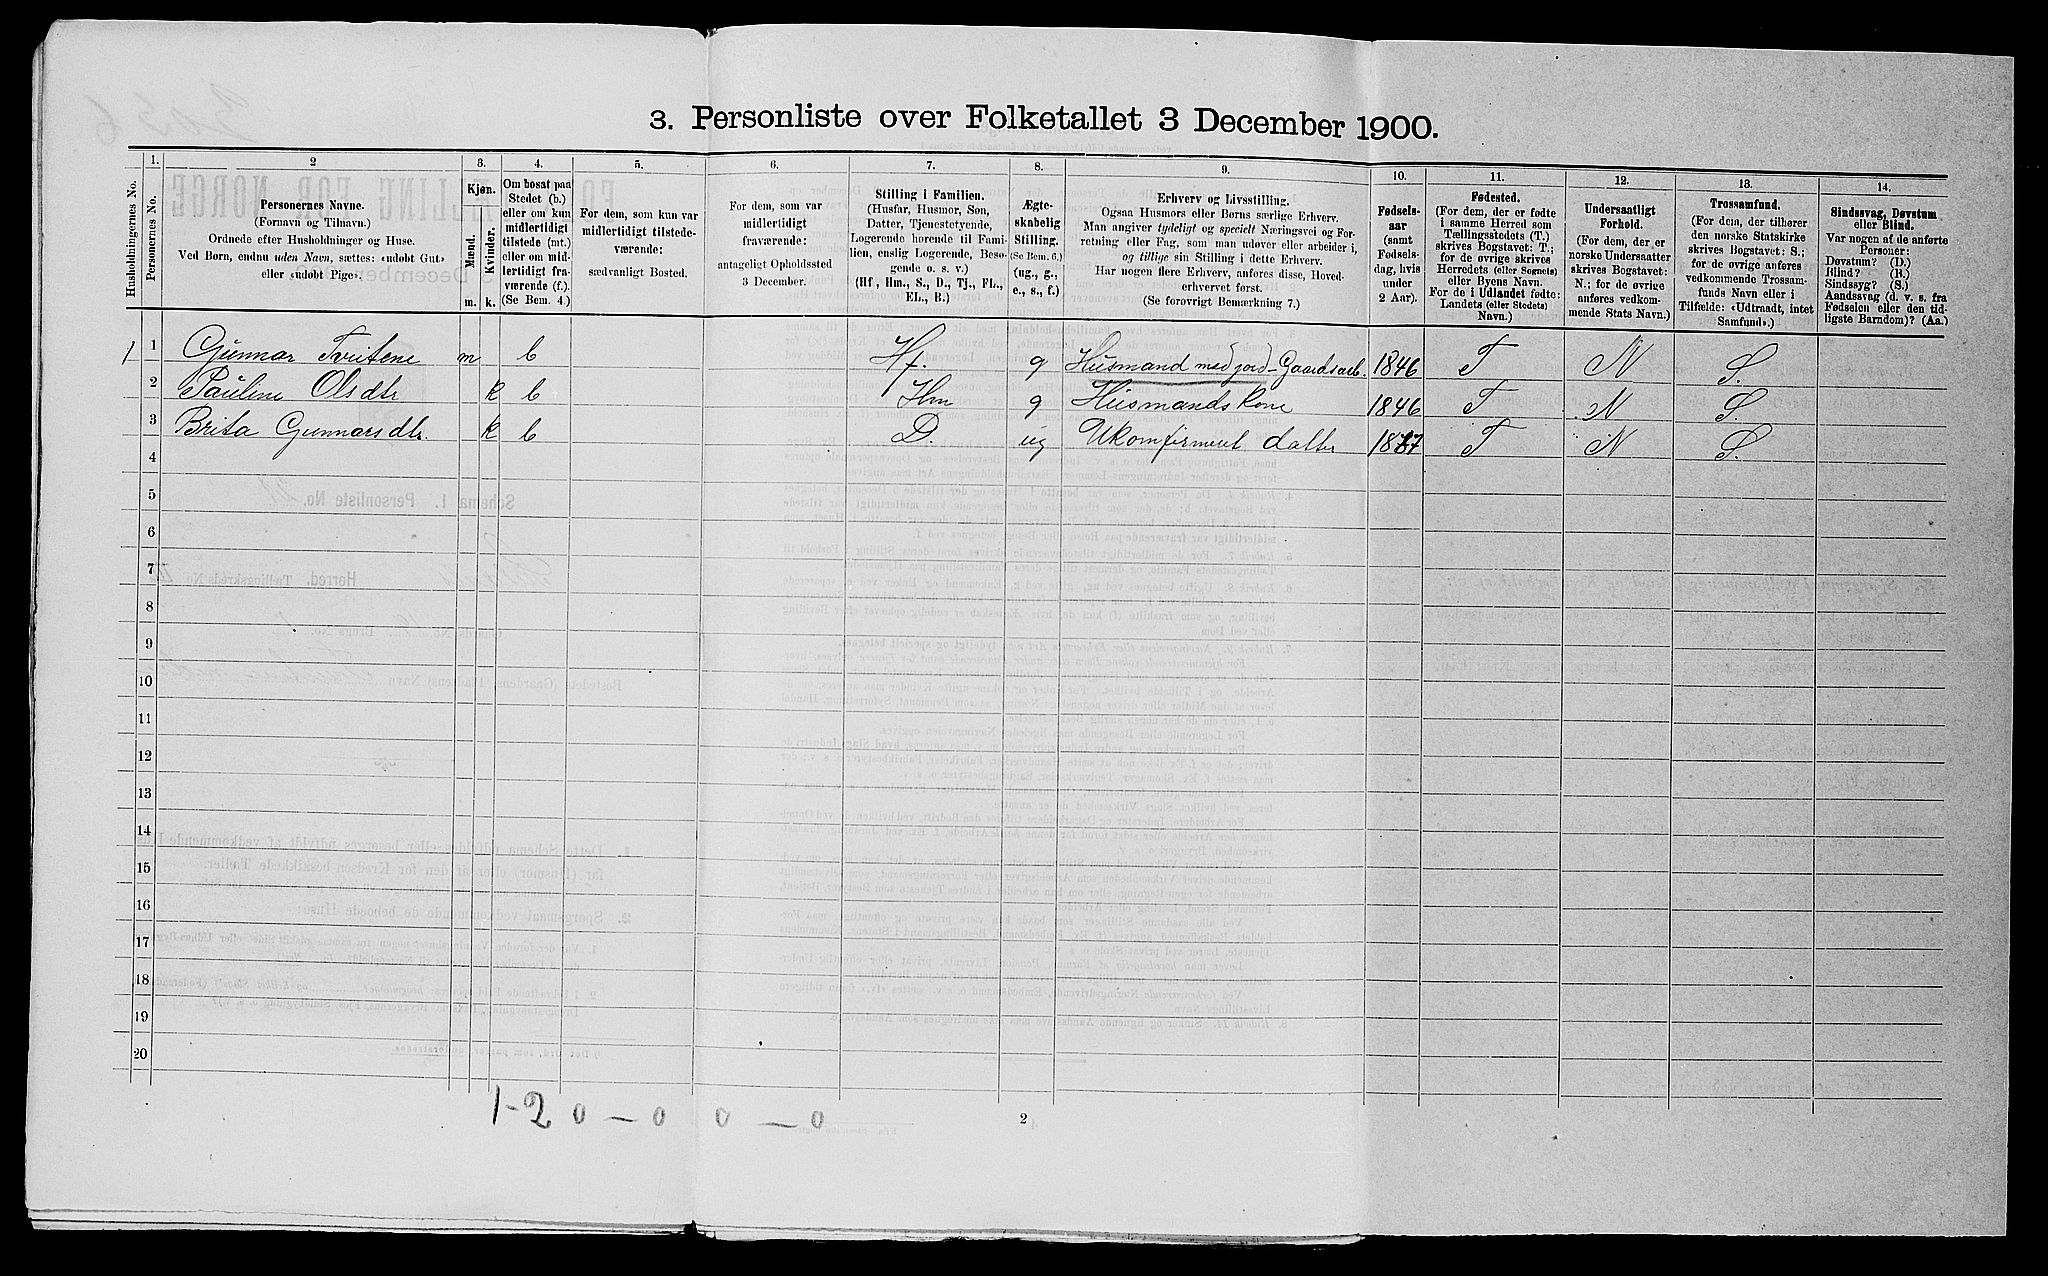 3. Personliste over Folketallet 3 December 1900.
Husholdningernes No.
1. Personernes No.
2 Personernes Navne.
(Fornavn og Tilnavn.)
Ordnede efter Husholdninger og Huse.
Ved Børn, endnu uden Navn, sættes: «udøbt Gut»
eller «udøbt Pige».
3. Kjøn.
Mænd. m.
Kvinder. k.
4. Om bosat paa
Stedet (b.)
eller om kun
midlertidigt
tilstede (mt.)
eller om mid-
lertidigt fra-
værende (f.).
(Se Bem. 4.)
5. For dem, som kun var
midlertidigt tilstede-
værende:
sædvanligt Bosted.
6. For dem, som var
midlertidigt
fraværende:
antageligt Opholdssted
3 December.
7. Stilling i Familien.
(Husfar, Husmor, Søn,
Datter, Tjenestetyende,
Logerende hørende til Fami-
lien, enslig Logerende, Besø-
gende o. s. v.)
(Hf., Hm., S., D., Tj., FL.,
EL., B.)
8. Ægte-
skabelig
Stilling.
(Se Bem. 6.)
(ug., g.,
e., s., f.)
9. Erhverv og Livsstilling.
Ogsaa Husmors eller Børns særlige Erhverv.
Man angiver tydeligt og specielt Næringsvei og For-
retning eller Fag, som man udøver eller arbeider i,
og tillige sin Stilling i dette Erhverv.
Har nogen flere Erhverv, anføres disse, Hoved-
erhvervet først.
(Se forøvrigt Bemærkning 7.)
10. Fødsels-
aar
(samt
Fødsels-
dag, hvis
under
2 Aar).
11. Fødested.
(For dem, der er fødte
i samme Herred som
Tællingsstedets (T.)
skrives Bogstavet: T.;
for de øvrige skrives
Herredets (eller Sognets)
eller Byens Navn.
For de i Udlandet fødte:
Landets (eller Stedets)
Navn.)
12. Undersaatligt
Forhold.
(For dem, der er
norske Undersaatter
skrives Bogstavet:
N.; for de øvrige
anføres vedkom-
mende Stats Navn.)
13. Trossamfund.
(For dem, der tilhører
den norske Statskirke
skrives Bogstavet: S.;
for de øvrige anføres
vedkommende Trossam-
funds Navn eller i
Tilfælde: «Udtraadt, intet
Samfund».)
14. Sindssvag, Døvstum
eller Blind.
Var nogen af de anførte
Personer:
Døvstum? (D.)
Blind? (B.)
Sindssyg? (S.)
Aandssvag (d. v. s. fra
Fødselen eller den tid-
ligste Barndom)? (Aa.)
1 1 Gunnar Tveitene m b Hf. g Husmand med jord-Gaardsarb. 1846 T N S.
2 Pauline Olsdtr k b Hm g Husmandskone 1846 T N S.
3 Brita Gunnarsdtr. k b D. ug Ukomfirmert datter T N S.
4
5
6
7
8
9
10
11
12
13
14
15
16
17
18
19
20
1-2 0 — 0 0 — 0
2